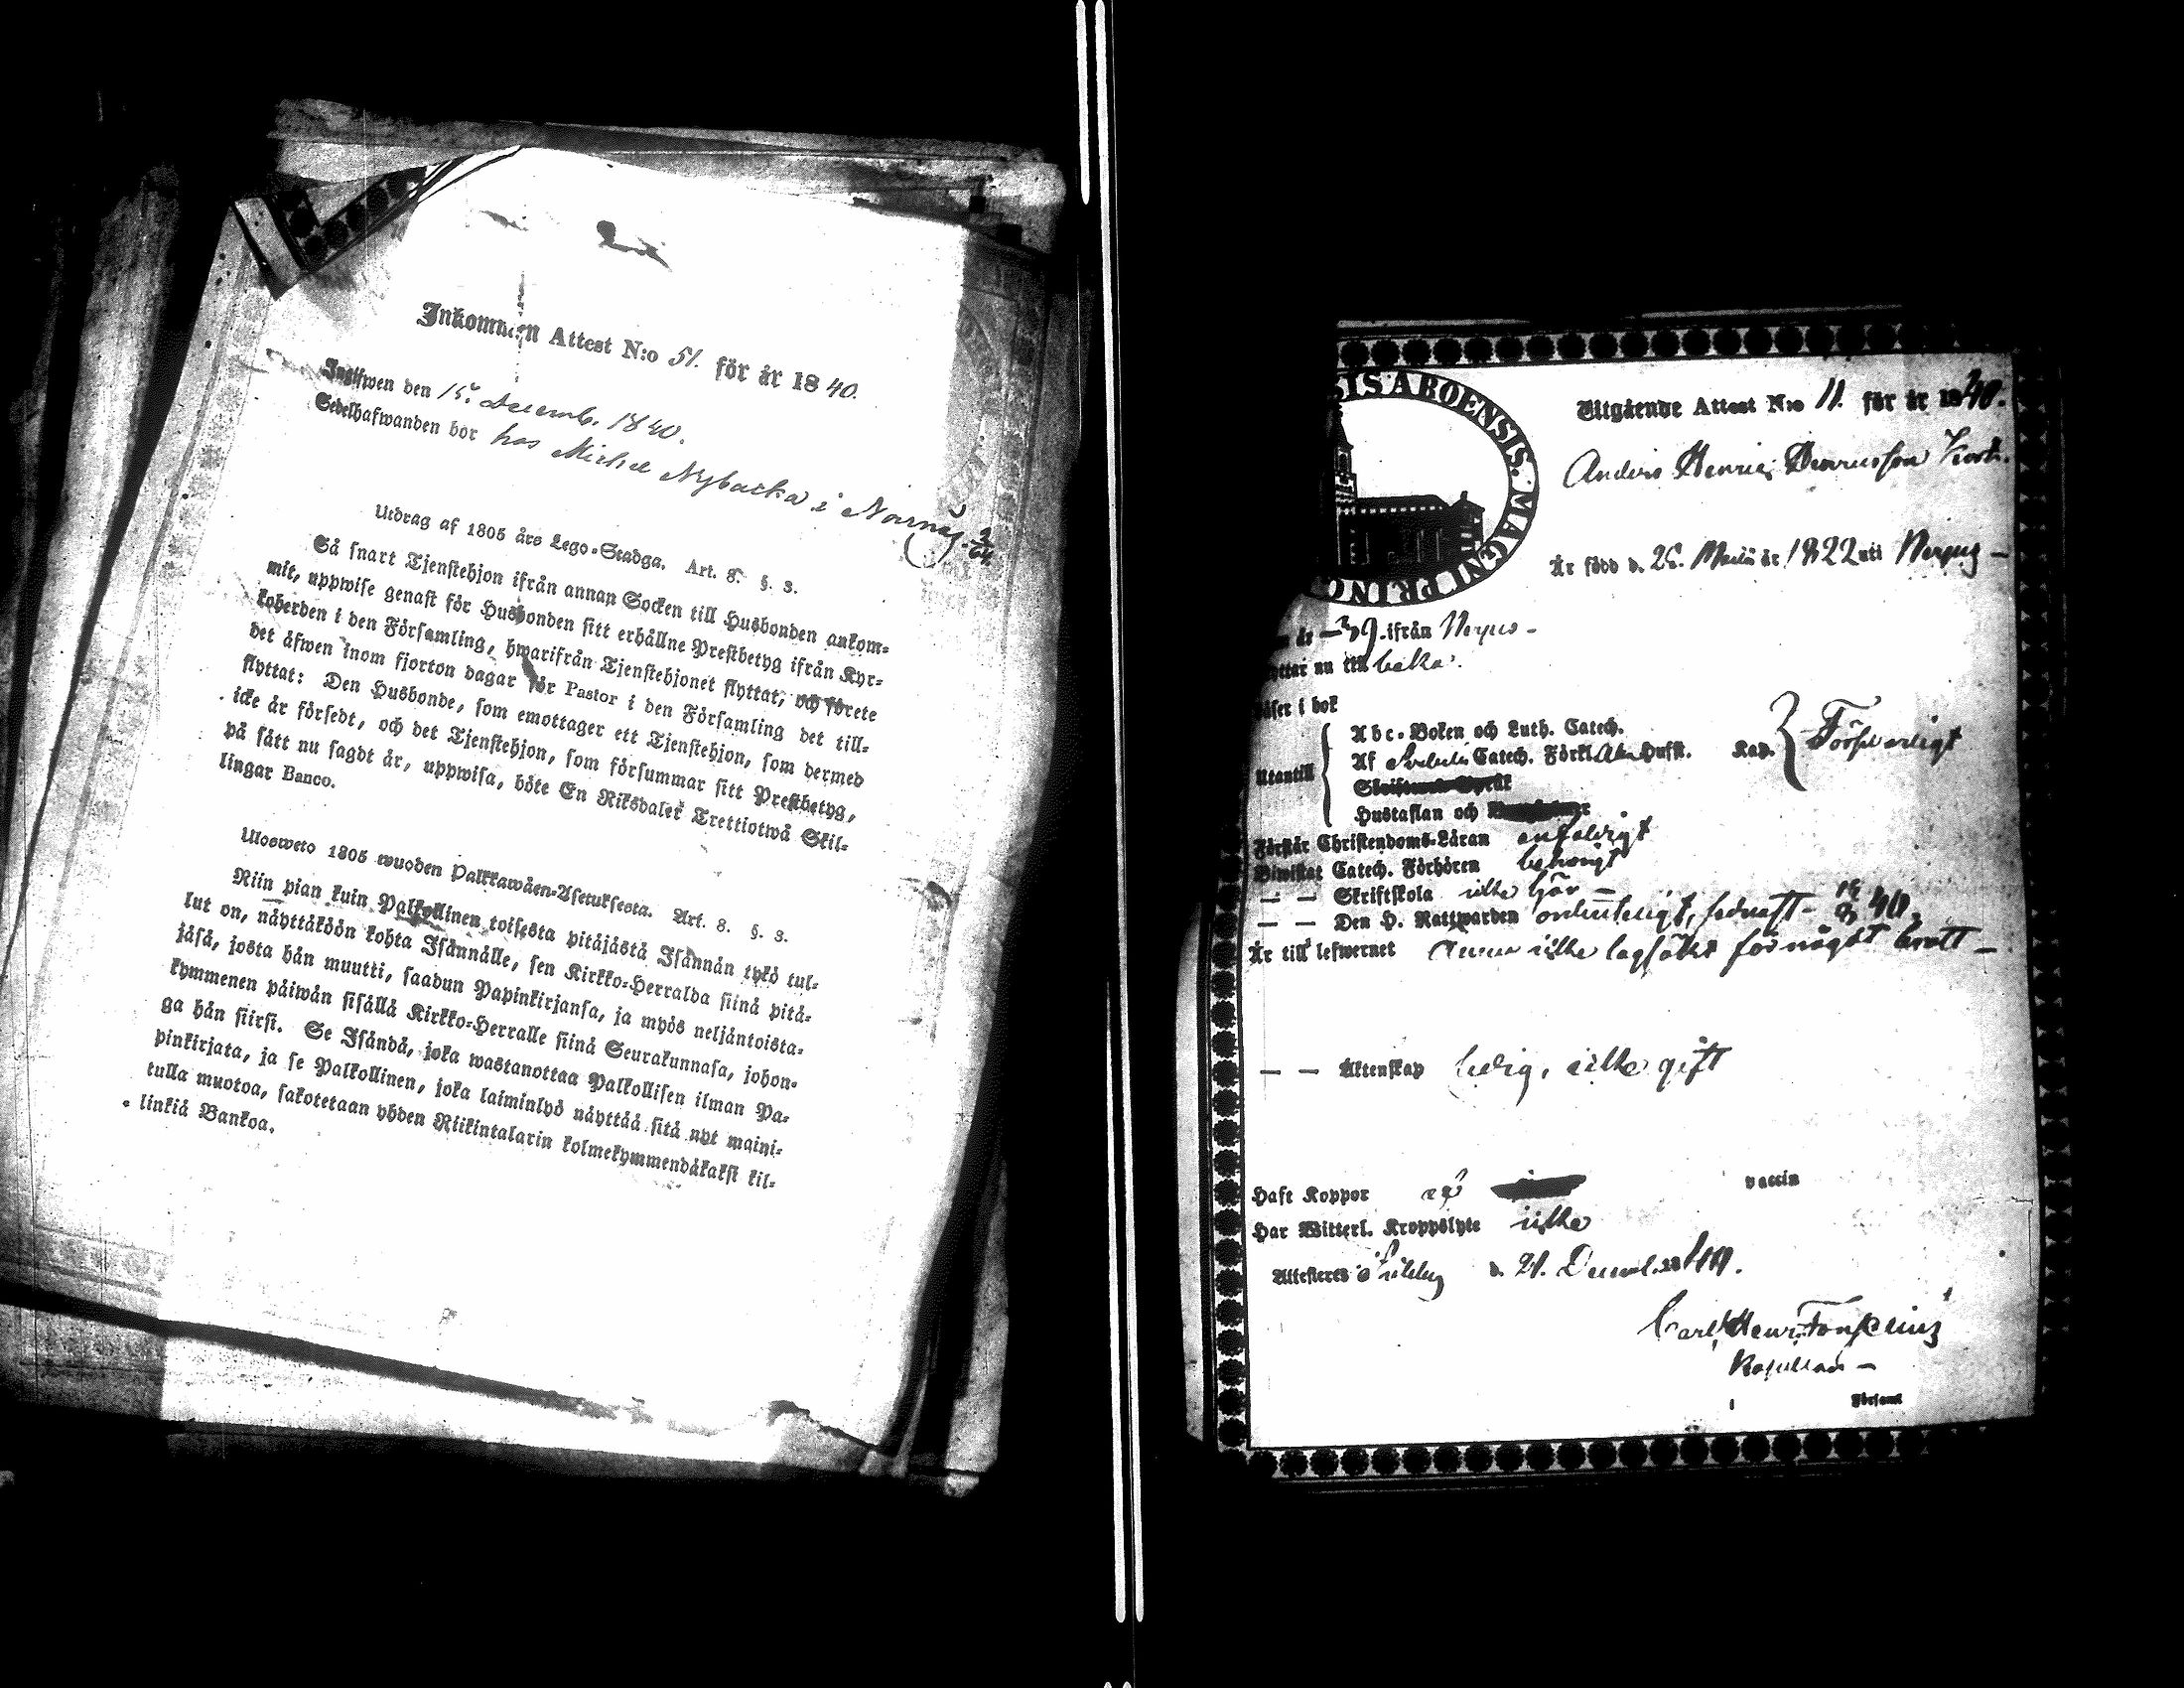 Inkommen Attest N:o 51. för år 1840.
Ingifwen den 15. Decemb. 1840.
Sedelhafwanden bor hos Michel Nybacka i Norrnäs.
Utdrag af 1805 års Lego-Stadga. Art. 8. §. 3.
Så snart Tjenstehjon ifrån annan Socken till Husbonden ankom-
mit, uppwise genast för Husbonden sitt erhållne Prestbetyg ifrån Kyr-
koherden i den Församling, hwarifrån Tjenstehjonet flyttat, och förete
det äfwen inom fjorton dagar för Pastor i den Församling det till-
flyttat: Den Husbonde, som emottager ett Tjenstehjon, som dermed
icke är försedt, och det Tjenstehjon, som försummar sitt Prestbetyg,
på sätt nu sagdt är, uppwisa, böte En Riksdaler Trettiotwå Skil-
lingar Banco.
Ulosweto 1805 wuoden Palkkawäen-Asetuksesta. Art. 8. §. 3.
Niin pian kuin Palkollinen toisesta pitäjästä Isännän tykö tul-
lut on, näyttäköön kohta Isännälle, sen Kirkko-Herralda siinä pitä-
jäsä, josta hän muutti, saadun Papinkirjansa, ja myös neljäntoista-
kymmenen päiwän sisällä Kirkko-Herralle siinä Seurakunnasa, johon-
ga hän siirsi. Se Isändä, joka wastanottaa Palkollisen ilman Pa-
pinkirjata, ja se Palkollinen, joka laiminlyö näyttää sitä nyt maini-
tulla muotoa, sakotetaan yhden Riikintalarin kolmekymmendäkaksi kil-
linkiä Bankoa.
SIS ABOENSIS. MAGNI PRINC
Utgående Attest N:o 11. för år 1840.
Anders Henric
Är född d. 26. år 1822 uti
ifrån
nu till
i bok
Utantill
Abc-Boken och Luth. Catech.
Af Catech. Förkl. Hufst. Kap. Försvarligt
Hustaflan och
Förstår Christendoms-Läran enfaldigt
Biwistat Catech. Förhören behörigt
— — Skriftskola icke
— — Den H. Nattwarden ordenteligt, sednast 40.
Är till lefwernet icke lagsökt för något brott —
— — Äktenskap ledig, icke gift
Haft Koppor vaccin
Har Witterl. Kroppslyte icke
Attesteres d. 21. Decemb. 1840.
Carl Henr.
Kapellan —
Församl